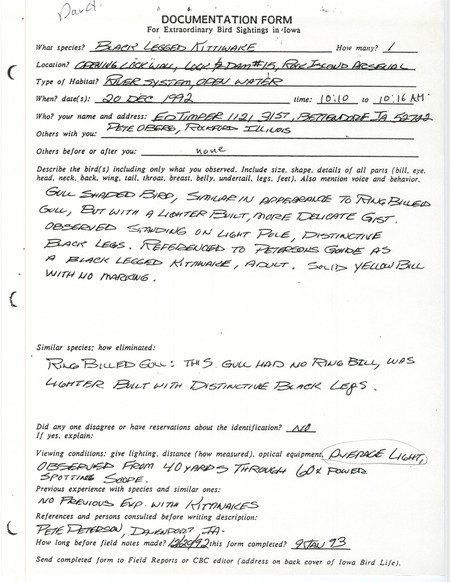 DOCUMENTATION FORM
For Extraordinary Bird Sightings in Iowa
What species? BLACK LEGGED KITTIWAKE How many? 1
Location? OPENING LOCK WALL, LOCK & DAM #15, ROCK ISLAND ARSENAL
Type of Habitat? RIVER SYSTEM, OPEN WATER
When? date(s): 20 DEC 1992 time: 10:10 to 10:16 AM.
Who? your name and address: ED TIMPER 1121 31ST, BETTENDORF IA 52722
Others with you: PETE OBERG, ROCKFORD ILLINOIS
Others before or after you: none
Describe the bird(s) including only what you observed. Include size, shape, details of all parts (bill, eye,
head, neck, back, wing, tail, throat, breast, belly, undertail, legs, feet). Also mention voice and behavior.
GULL SHAPED BIRD, SIMILAR IN APPEARANCE TO RING BILLED
GULL, BUT WITH A LIGHTER BUILT, MORE DELICATE GIST.
OBSERVED STANDING ON LIGHT POLE, DISTINCTIVE
BLACK LEGS. REFERENCED TO PETERSONS GUIDE AS
A BLACK LEGGED KITTIWAKE, ADULT. SOLID YELLOW BILL
WITH NO MARKING.
Similar species; how eliminated:
RING BILLED GULL: THIS GULL HAD NO RING BILL, WAS
LIGHTER BUILT WITH DISTINCTIVE BLACK LEGS.
Did any one disagree or have reservations about the identification? NO
If yes, explain:
Viewing conditions: give lighting, distance (how measured), optical equipment. AVERAGE LIGHT,
OBSERVED FROM 40 YARDS THROUGH 60X POWER
SPOTTING SCOPE.
Previous experience with species and similar ones:
NO PREVIOUS EXP. WITH KITTIWAKES
References and persons consulted before writing description:
PETE PETERSON, DAVENPORT, IA.
How long before field notes made? 12/20/92 this form completed? 9 JAN 93
Send completed form to Field Reports or CBC editor (address on back cover of Iowa Bird Life).